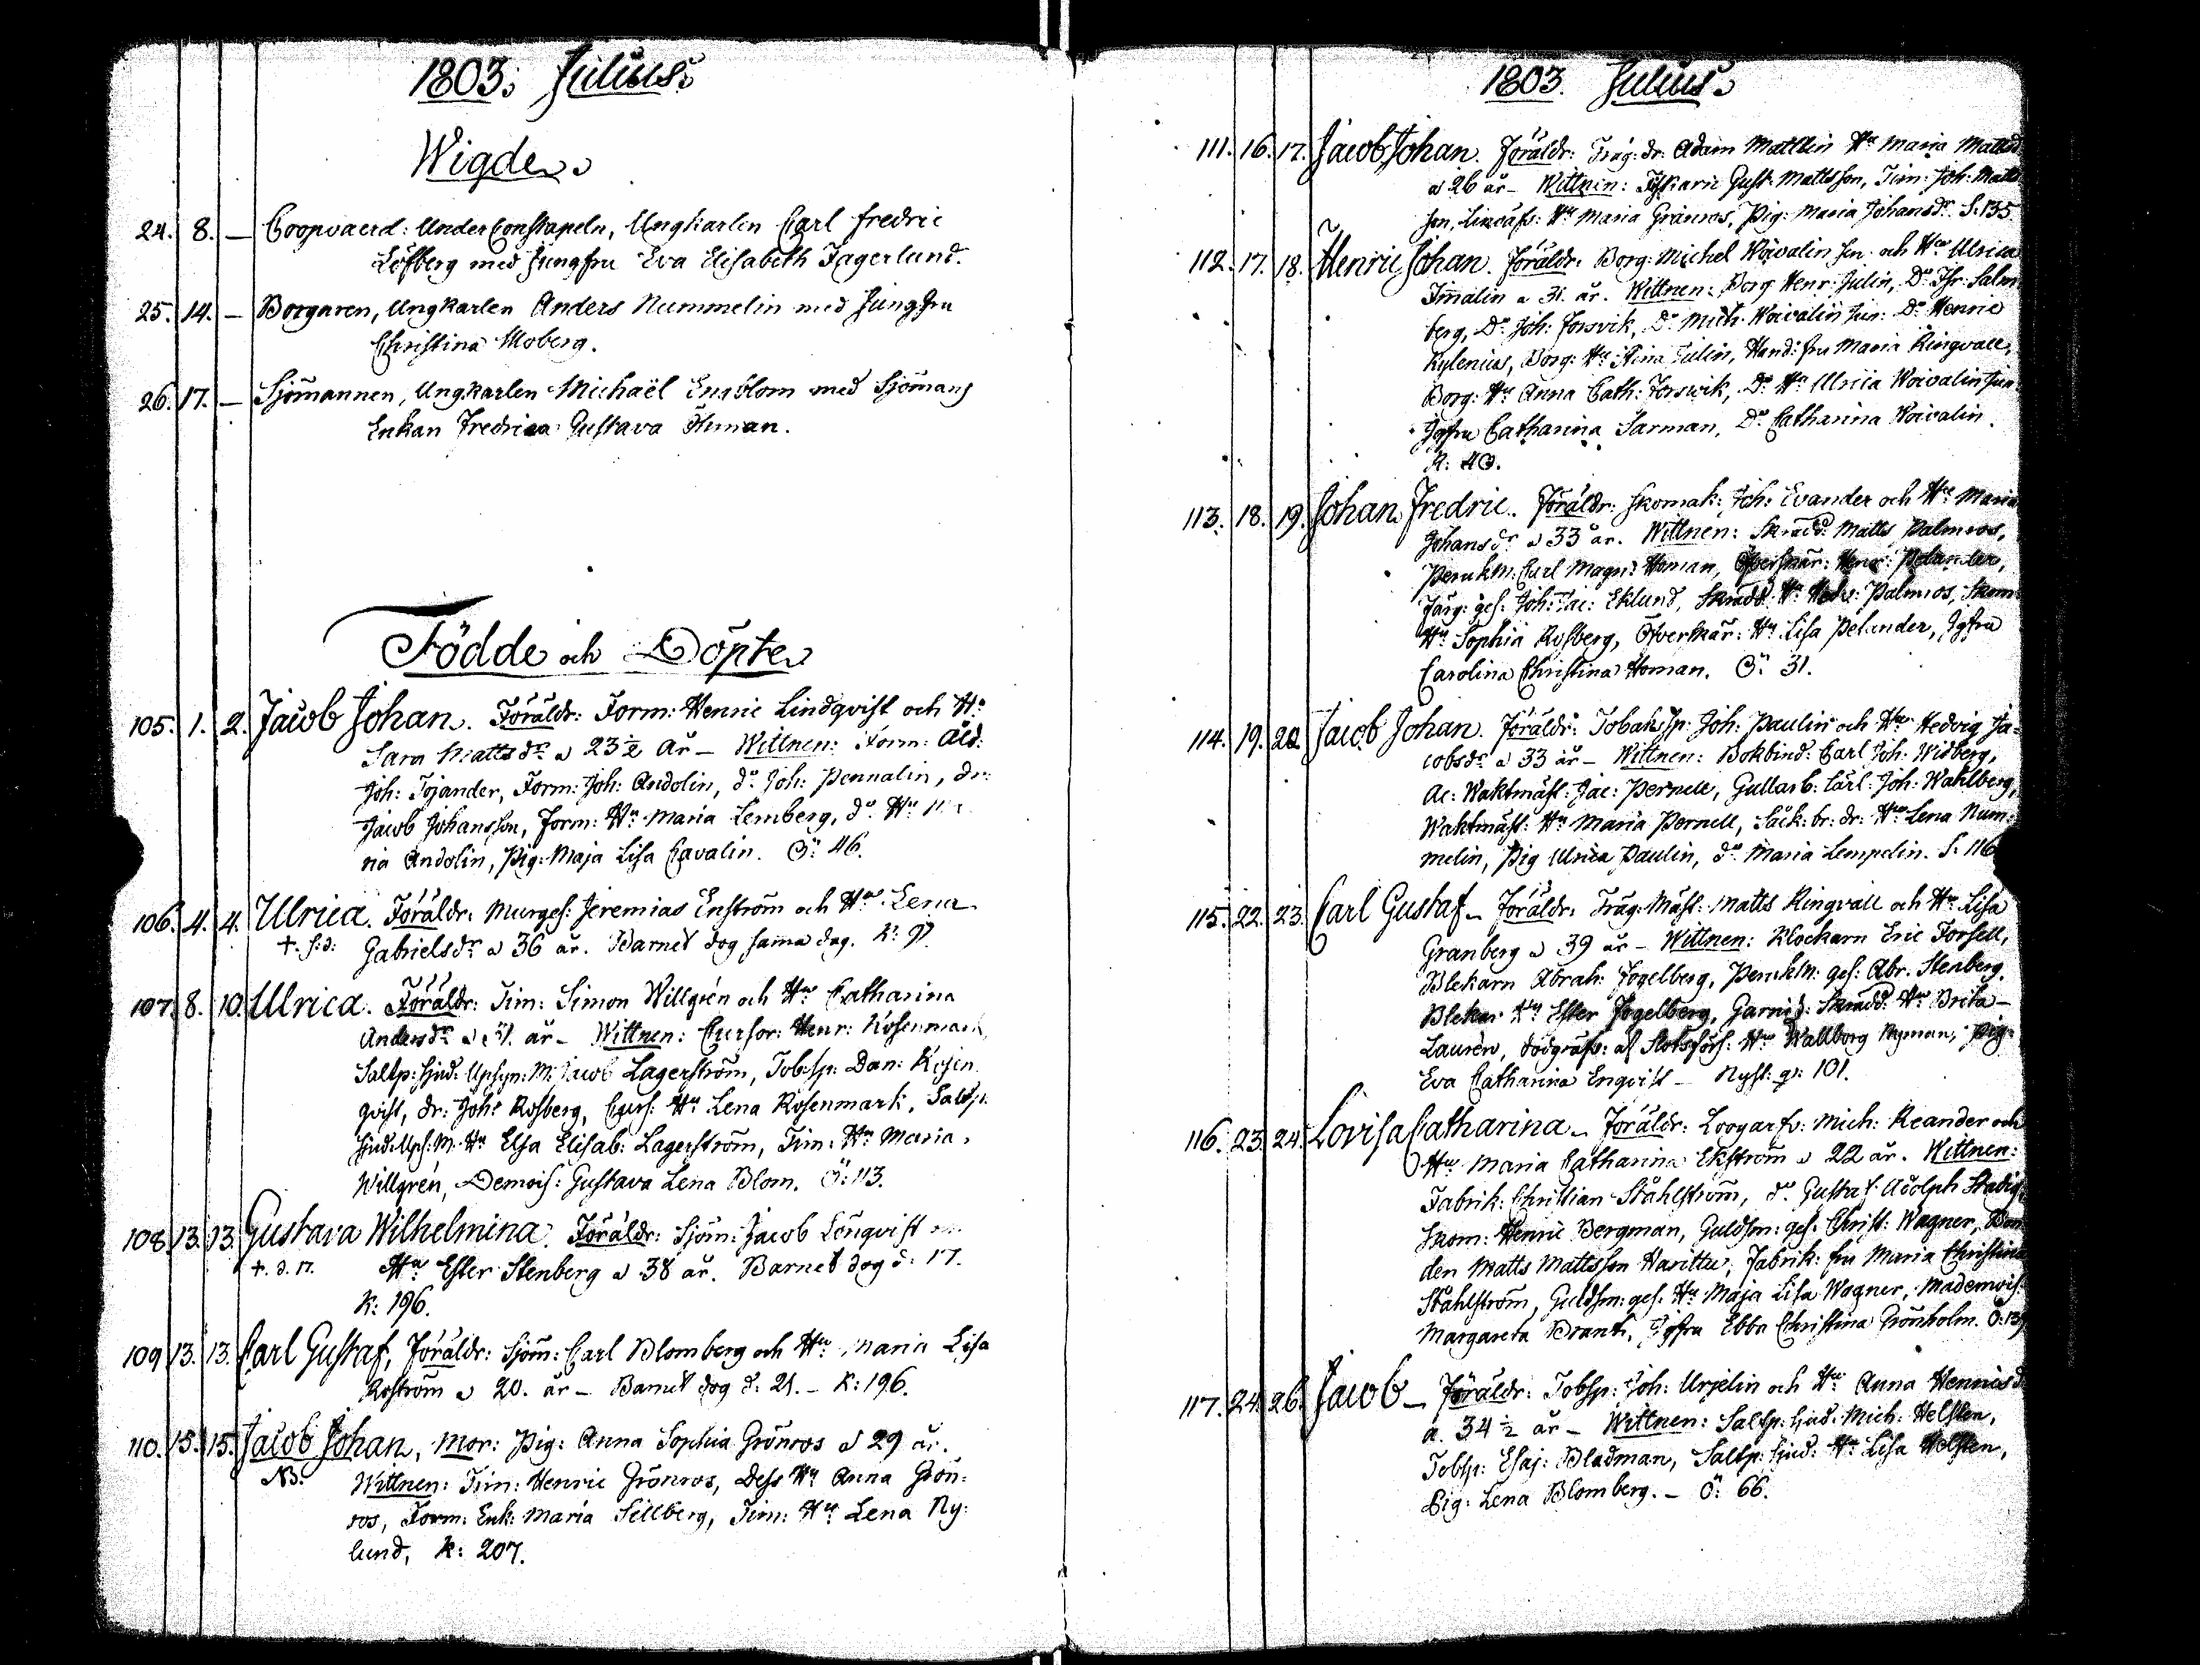 1803. Julius.
Wigde.
24. 8. — Coopvaerd: UnderConstapeln, Ungkarlen Carl Fredric
Löfberg med Jungfru Eva Elisabeth Fagerlund.
25. 14. — Borgaren, Ungkarlen Anders Nummelin med Jungfru
Christina Moberg.
26. 17. — Sjömannen, Ungkarlen Michaël Engblom med Sjömans
Enkan Fredrica Gustava Öhman.
Födde och Döpte
105. 1. 2. Jacob Johan. Föräldr: Form: Henric Lindqvist och Hu
Sara Mattsdr a 23½ år — Wittnen: Form: Åld:
Joh: Tojander, Form: Joh: Andolin, do Joh: Pennalin, dr:
Jacob Johansson, Form: Hu Maria Lemberg, do Hu
ria Andolin, Pig: Maja Lisa Cavalin. Ö: 46.
106. 4. 4. Ulrica. Föräldr: Murges: Jeremias Enström och Hu Lena
†. s. d: Gabrielsdr a 36 år. Barnet dog sama dag. K: 97.
107. 8. 10. Ulrica. Föräldr: Tim: Simon Willgrén och Hu Catharina
Andersdr a 31. år — Wittnen: Cursor: Henr: Rosenmark
Saltp: Sjud: Upsyn: M: Jacob Lagerström, Tob: sp: Dan: Rosen
qvist, dr: Joh: Rosberg, Curs: Hu Lena Rosenmark, Saltp:
Sjud: Ups: M: Hu Elsa Elisab: Lagerström, Tim: Hu Maria
Willgrén, Demois: Gustava Lena Blom. Ö: 113.
108. 13. 13. Gustava Wilhelmina. Föräldr: Sjöm: Jacob Lönqvist
†. d. 17. Hu Ester Stenberg a 38 år. Barnet dog d: 17.
K: 196.
109. 13. 13. Carl Gustaf, Föräldr: Sjöm: Carl Blomberg och Hu Maria Lisa
Roström a 20. år — Barnet dog d: 21. — K: 196.
110. 15. 15. Jacob Johan, Mor: Pig: Anna Sophia Grönros a 29 år.
NB. Wittnen: Tim: Henric Grönros, Dess Hu Anna Grön:
ros, Form: Enk: Maria Sillberg, Tim: Hu Lena Ny:
lund, K: 207.
1803. Julius.
111. 16. 17. Jacob Johan. Föräldr: Träg: dr: Adam Mattlin Hu Maria Mattsd
a 26 år — Wittnen: Fiskarn Gust: Mattsson, Tim: Joh: Matts
son, Hu Maria Grönros, Pig: Maria Johansdr. S: 135
112. 17. 18. Henric Johan. Föräldr: Borg: Michel Woivalin Jun: och Hu Ulrica
a 31. år. Wittnen: Borg: Henr: Julin, Do Salm
berg, Do Joh: Forsvik, Do Mich: Woivalin Jun: Do Henric
Kylenius, Borg: Hu Stina Julin, Hand: fru Maria Ringvall,
Borg: Hu Anna Cath: Forsvik, Do Hu Ulrica Woivalin Jun:
Jgfru Catharina Sarman, Do Catharina Woivalin.
K: 40.
113. 18. 19. Johan Fredric. Föräldr: Skomak: Joh: Evander och Hu Maria
Johansdr a 33 år. Wittnen: Skrädd: Matts Palmros,
Perukm: Carl Magn: Homan, Öfverskär: Henr: Pelander,
Färg: ges: Joh: Jac: Eklund, Skrädd: Hu Hedv: Palmros, Skom:
Hu Sophia Rosberg, Öfverskär: Hu Lisa Pelander, Jgfru
Carolina Christina Homan. Ö: 31.
114. 19. 20. Jacob Johan. Föräldr: Tobakssp: Joh: Paulin och Hu Hedvig Ja:
cobsdr a 33 år — Wittnen: Bokbind: Carl Joh: Widberg,
Ac: Waktmäst: Jac: Pernell, Gullarb: Carl Joh: Wahlberg,
Waktmäst: Hu Maria Pernell, Säck: br: dr: Hu Lena Num:
melin, Pig Ulrica Paulin, do Maria Lempelin. S: 116
115. 22. 23. Carl Gustaf — Föräldr: Träg: Mäst: Matts Ringvall och Hu Lisa
Granberg a 39 år — Wittnen: Klockarn Eric Forsell,
Blekarn Abrah: Fogelberg, Perukm: ges: Abr. Stenberg,
Blekar Hu Ester Fogelberg, Garnis: Skrädd: Hu Brita —
Laurén, dödgräfv: af Slotsförs: Hu Wallborg Nyman, Pig:
Eva Catharina Enqvist — Nyst: gr: 101.
116. 23. 24. Lovisa Catharina — Föräldr: Mich: Reander och
Hu Maria Catharina Ekström a 22 år. Wittnen:
Fabrik: Christian Ståhlström, do Gustaf Adolph
Skom: Henric Bergman, Guldsm: ges: Christ: Wagner, Bon
den Matts Mattsson Harittu, Fabrik: fru Maria Christina
Ståhlström, Guldsm: ges: Hu Maja Lisa Wagner, Mademois:
Margareta Brant, Jgfru Ebba Christina Grönholm. Ö: 139
117. 24. 26. Jacob — Föräldr: Tobsp: Joh: Urjelin och Hu Anna Henricsd
a. 34½ år — Wittnen: Saltp: Sjud: Mich: Helsten,
Tobsp: Esaj: Bladman, Saltp: Sjud: Hu Lisa Helsten,
Pig: Lena Blomberg. — Ö: 66.